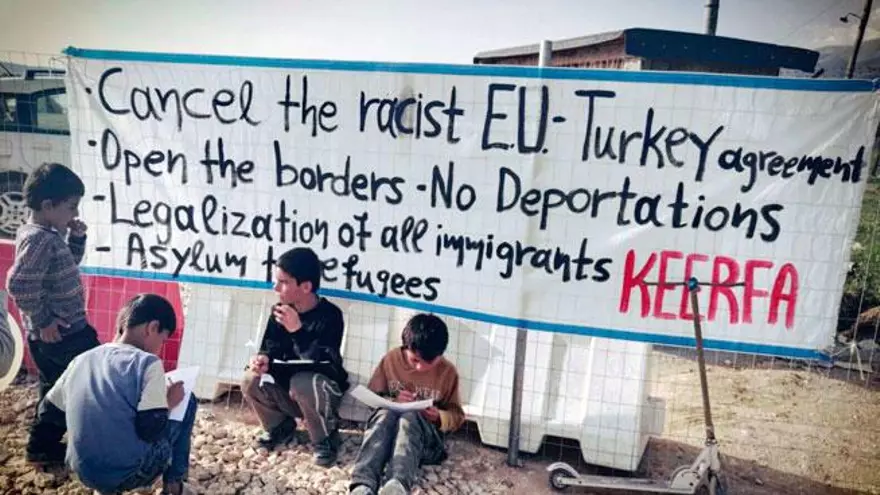 · Cancel the racist E.U.-Turkey agreement
· Open the borders - No Deportations
- Legalization of all immigrants
- Asylum refugees
KEERFA